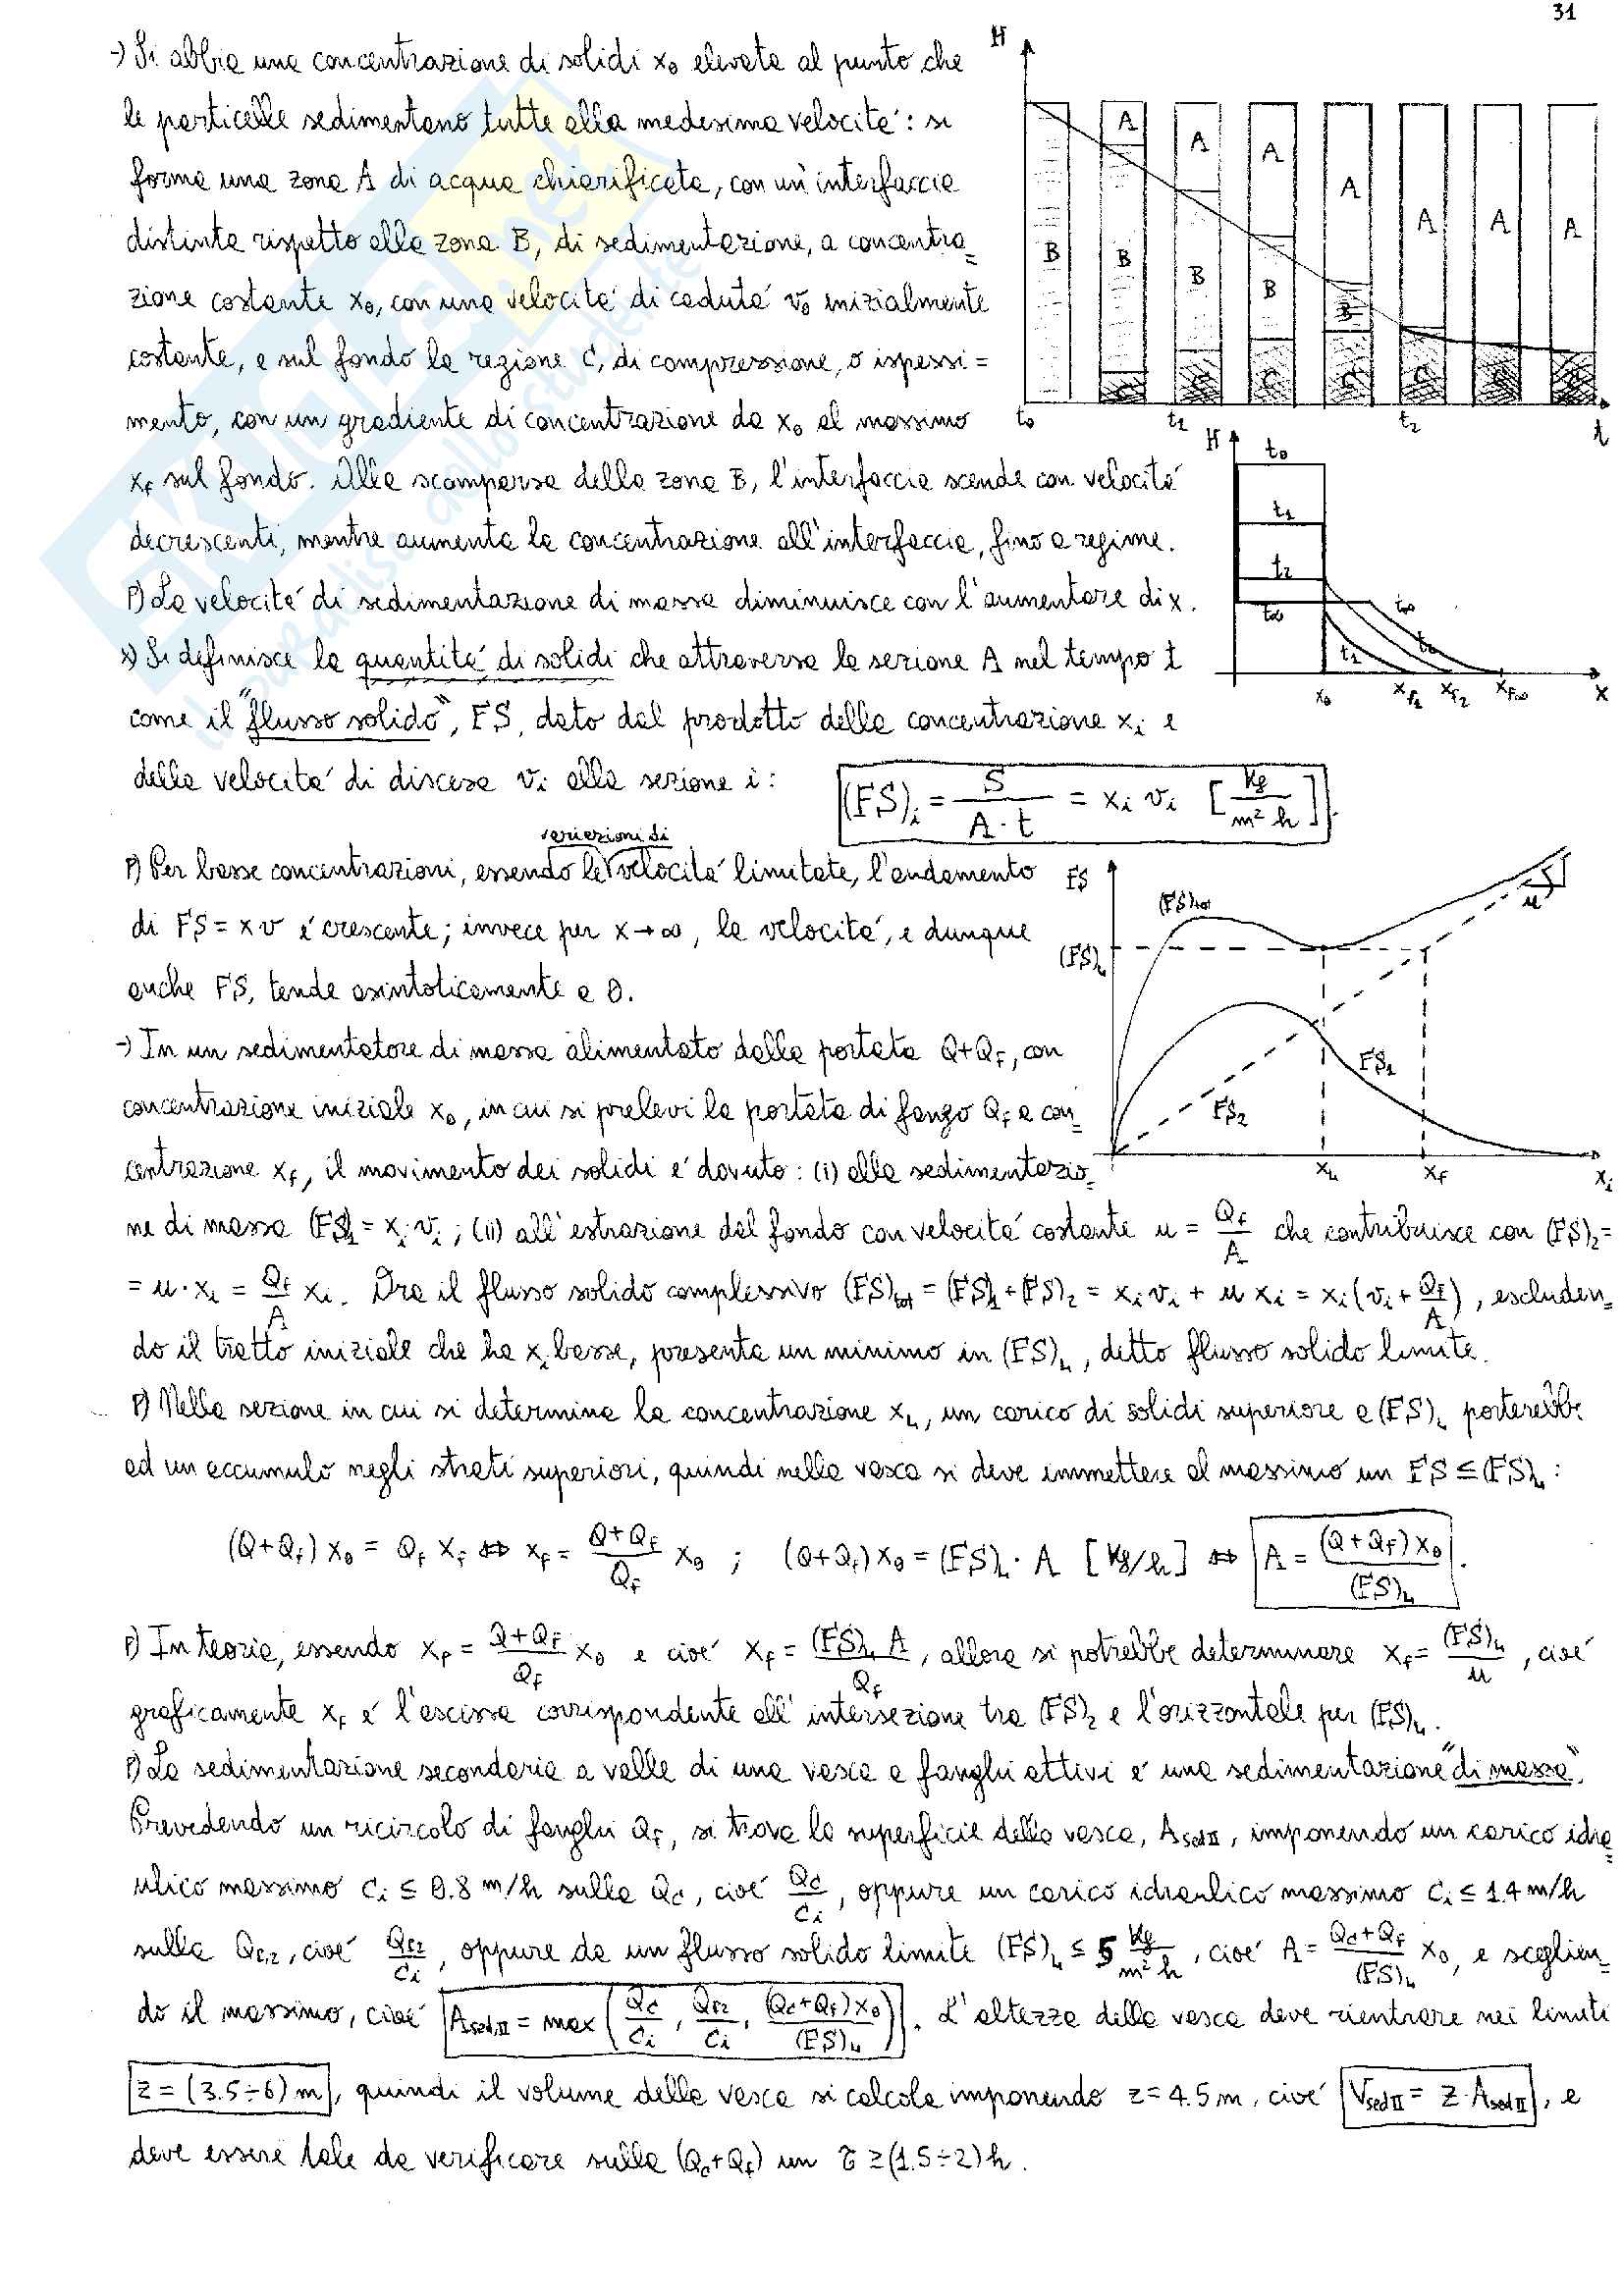 31
→) Si abbia una concentrazione di solidi x₀ elevata al punto che
le particelle sedimentano tutte alla medesima velocità: si
forma una zona A di acqua chiarificata, con un'interfaccia
distinta rispetto alla zona B, di sedimentazione, a concentra=
zione costante x₀, con una velocità di caduta v₀ inizialmente
costante, e sul fondo la regione C, di compressione, o ispessi=
mento, con un gradiente di concentrazione da x₀ al massimo
x_f sul fondo. Alla scomparsa della zona B, l'interfaccia scende con velocità
decrescenti, mentre aumenta la concentrazione all'interfaccia, fino a regime.
P) La velocità di sedimentazione di massa diminuisce con l'aumentare di x.
x) Si definisce la quantità di solidi che attraversa la sezione A nel tempo t
come il "flusso solido", FS, dato dal prodotto della concentrazione x_i e
della velocità di discesa v_i alla sezione i: (FS)_i = S / (A·t) = x_i v_i [kg / m² h].
P) Per basse concentrazioni, essendo le variazioni di velocità limitate, l'andamento
di FS = x v è crescente; invece per x → ∞, la velocità, e dunque
anche FS, tende asintoticamente a 0.
→) In un sedimentatore di massa alimentato dalla portata Q+Q_f, con
concentrazione iniziale x₀, in cui si prelevi la portata di fango Q_f a con=
centrazione x_f, il movimento dei solidi è dovuto: (i) alla sedimentazio=
ne di massa (FS)₁ = x_i v_i; (ii) all'estrazione dal fondo con velocità costante u = Q_f / A che contribuisce con (FS)₂=
= u·x_i = Q_f / A x_i. Ora il flusso solido complessivo (FS)_tot = (FS)₁+(FS)₂ = x_i v_i + u x_i = x_i (v_i + Q_f / A), escluden=
do il tratto iniziale che ha x_i basse, presenta un minimo in (FS)_L, detto flusso solido limite.
P) Nella sezione in cui si determina la concentrazione x_L, un carico di solidi superiore a (FS)_L porterebbe
ad un accumulo negli strati superiori, quindi nella vasca si deve immettere al massimo un FS ≤ (FS)_L:
(Q+Q_f) x₀ = Q_f x_f ⇔ x_f = (Q+Q_f) / Q_f x₀ ; (Q+Q_f) x₀ = (FS)_L · A [kg/h] ⇔ A = (Q+Q_f) x₀ / (FS)_L.
P) In teoria, essendo x_f = (Q+Q_f) / Q_f x₀ e cioè x_f = (FS)_L A / Q_f, allora si potrebbe determinare x_f = (FS)_L / u, cioè
graficamente x_f è l'ascissa corrispondente all'intersezione tra (FS)₂ e l'orizzontale per (FS)_L.
P) La sedimentazione secondaria a valle di una vasca a fanghi attivi è una sedimentazione "di massa".
Prevedendo un ricircolo di fanghi Q_f, si trova la superficie della vasca, A_sed II, imponendo un carico idra=
ulico massimo C_i ≤ 0.8 m/h sulla Q_c, cioè Q_c / C_i, oppure un carico idraulico massimo C_i ≤ 1.4 m/h
sulla Q_c,2, cioè Q_c2 / C_i, oppure da un flusso solido limite (FS)_L ≤ 5 kg / m² h, cioè A = (Q_c+Q_f) / (FS)_L x₀, e sceglien=
do il massimo, cioè A_sed,II = max (Q_c / C_i, Q_c2 / C_i, (Q_c+Q_f) x₀ / (FS)_L). L'altezza della vasca deve rientrare nei limiti
z = (3.5÷6) m, quindi il volume della vasca si calcola imponendo z = 4.5 m, cioè V_sed II = z·A_sed II, e
deve essere tale da verificare sulla (Q_c+Q_f) un τ ≥ (1.5÷2) h.
H
A A A A A A A
B B B B B
C C C C C C C
t₀ t₁ t₂ t
H
t₀
t₁
t₂
t∞
t∞
t₁
x₀ x_f1 x_f2 x_f∞ x
FS
(FS)_tot
u
(FS)_L
FS₁
FS₂
x_L x_f x_i